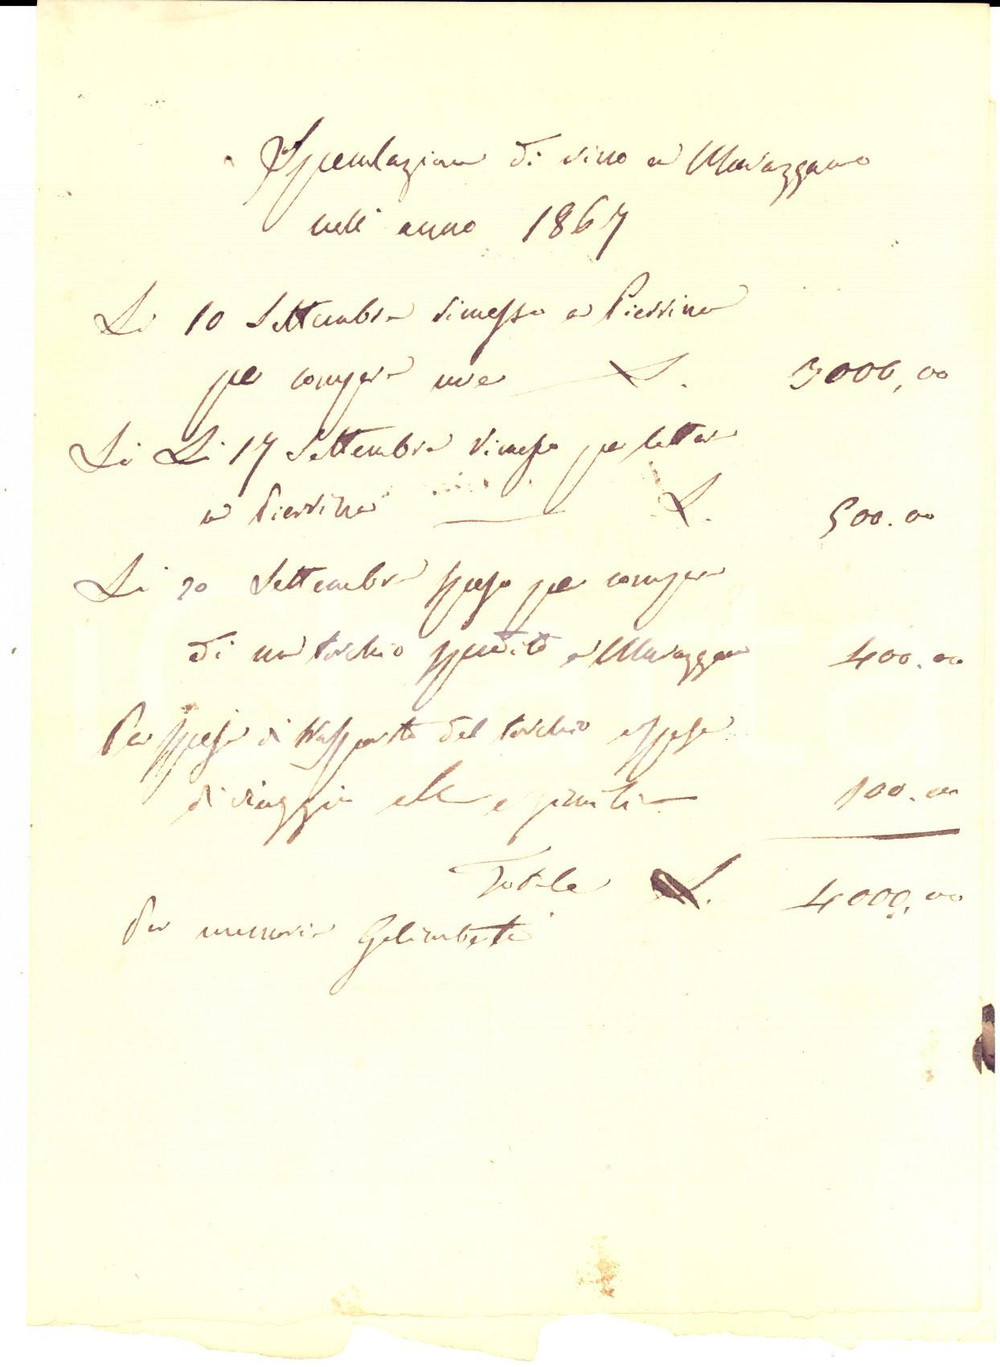 Speculazione di vino a Murazzano
nell' anno 1867
Li 10 Settembre rimesso a Pierrino
per compra uve L. 3000,00
Li Li 17 Settembre rimesso per lettera
a Pierrino L. 500.00
Li 20 Settembre speso per compra
di un torchio spedito a Murazzano 400.00
Per spese di trasporto del torchio e spese
di viaggio 100.00
Totale L. 4000,00
Per memoria Galimberti